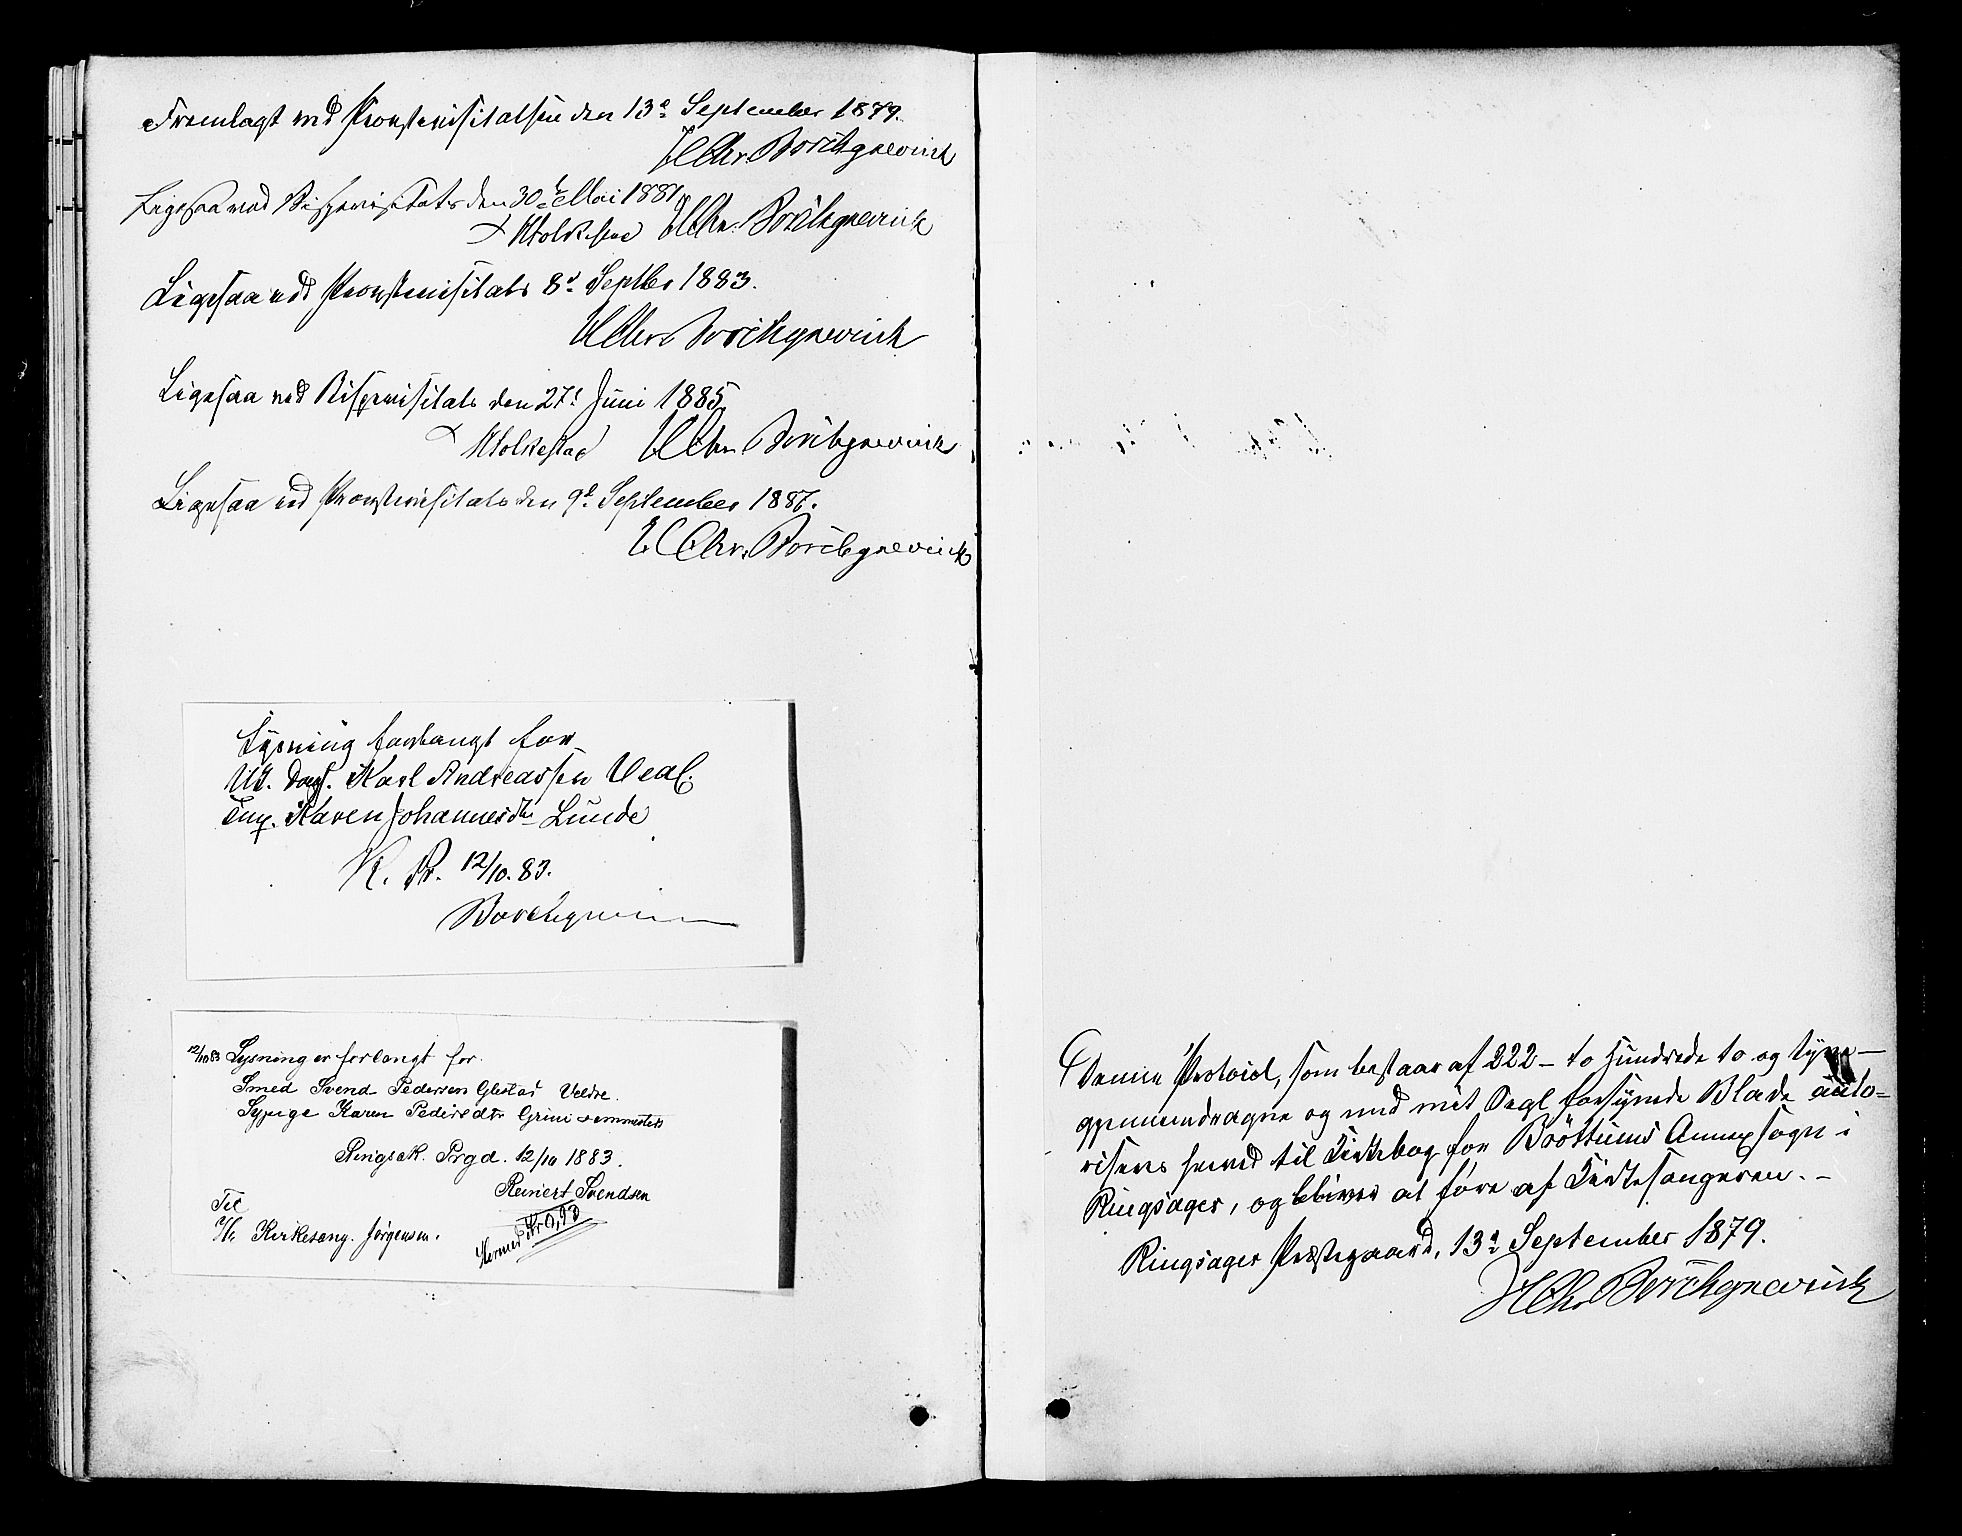 Fremlagt ved Provstevisitatsen den 13de September 1879.
H Chr. Borchgrevink
Ligesaa ved Bispevisitats den 30te Mai 1881
Folkestad H Chr. Borchgrevink
Ligesaa ved Provstevisitats 8de Septbr 1883.
H Chr. Borchgrevink
Ligesaa ved Bispevisitats den 27de Juni 1885.
Folkestad H Chr. Borchgrevink
Ligesaa ved Provstevisitats den 9de September 1887.
H Chr. Borchgrevink
Lysning forlangt for
Karl Andreassen
Karen Johannesdtr Lunde
R. P. 12/10. 83.
Borchgrevink
12/10 83 Lysning er forlangt for.
Smed Svend Pedersen Glestad Veldre.
Sypige Karen Pedersdtr Grini
Ringsak. Prgd. 12/10 1883.
Reinert Svendsen
Til
Hr Kirkesang. Jørgensen.
Denne Protocol, som bestaar af 222 – to Hundrede to og tyve –
gjennemdragne og med mit Segl forsynede Blade auto-
riseres herved til Kirkebog for Brøttums Annexsogn i
Ringsager, og bliver at føre af Kirkesangeren. –
Ringsager Præstegaard, 13de September 1879.
H Chr Borchgrevink